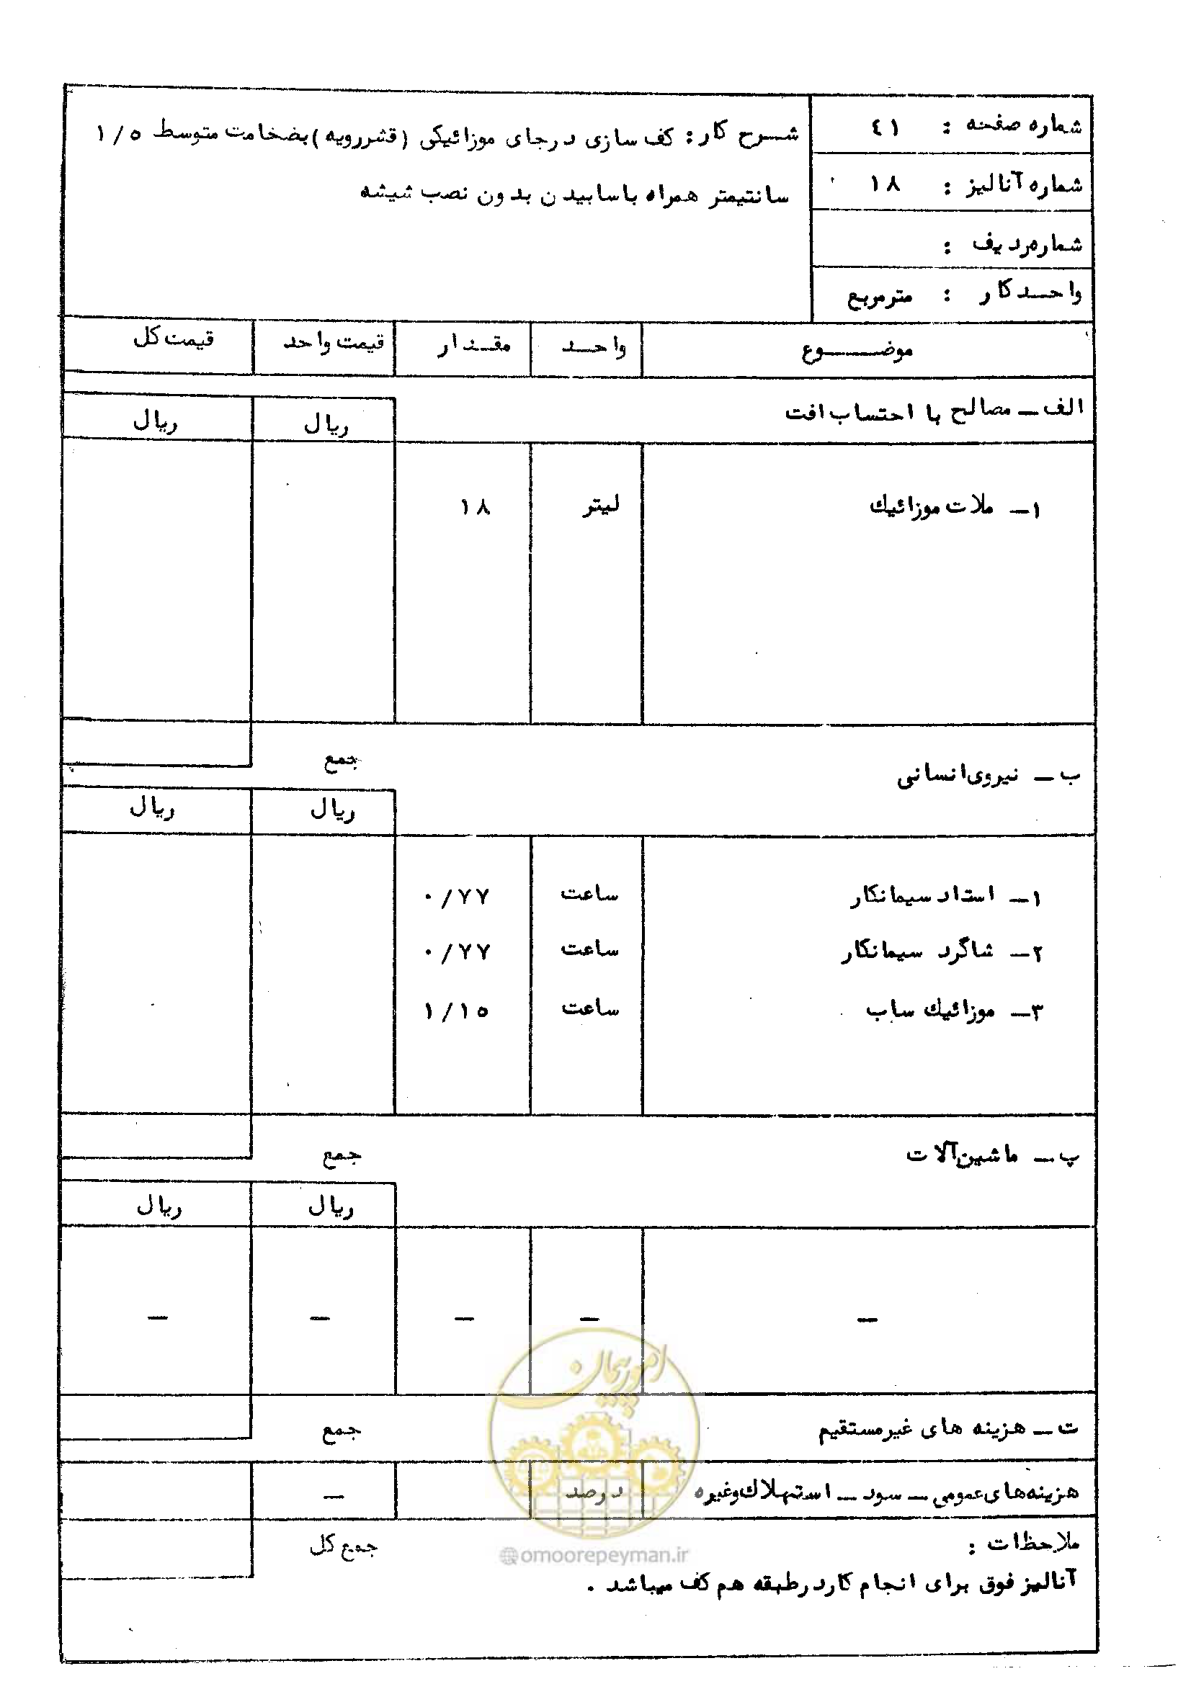 شماره صفحه : ٤١
شماره آنالیز : ۱۸
شماره ردیف :
واحد کار : مترمربع
شرح کار : کف سازی درجای موزائیکی (قشررویه) بضخامت متوسط ۱/۵
سانتیمتر همراه باسابیدن بدون نصب شیشه
موضوع واحد مقدار قیمت واحد قیمت کل
الف ـ مصالح با احتساب افت ریال ریال
۱ـ ملات موزائیک لیتر ۱۸
جمع
ب ـ نیروی انسانی
ریال ریال
۱ـ استاد سیمانکار ساعت ۰/۷۷
۲ـ شاگرد سیمانکار ساعت ۰/۷۷
۳ـ موزائیک ساب ساعت ۱/۱۵
پ ـ ماشین آلات جمع
ریال ریال
ـ ـ ـ ـ ـ
امور پیمان
ت ـ هزینه های غیرمستقیم جمع
هزینه‌های عمومی ـ سود ـ استهلاک وغیره درصد ـ
ملاحظات : جمع کل
@omoorepeyman.ir
آنالیز فوق برای انجام کاردرطبقه هم کف میباشد .